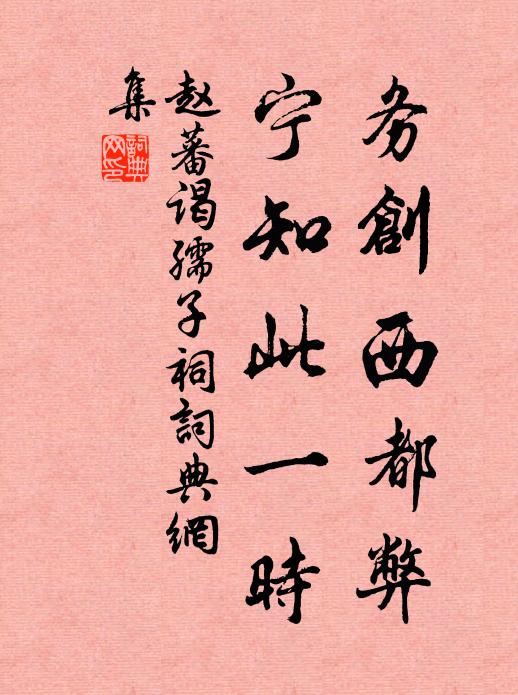 务創西都弊
宁知此一時
赵蕃谒孺子祠詞典網
集
詞典网印